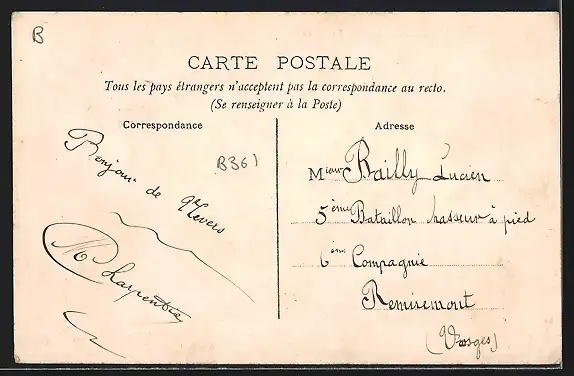 B
CARTE POSTALE
Tous les pays étrangers n'acceptent pas la correspondance au recto.
(Se renseigner à la Poste)
Correspondance
B361
Bonjour de Nevers
M Charpentier
Adresse
Mieur Bailly Lucien
5ème Bataillon hasseur à pied
6ème Compagnie
Remiremont
(Vosges)